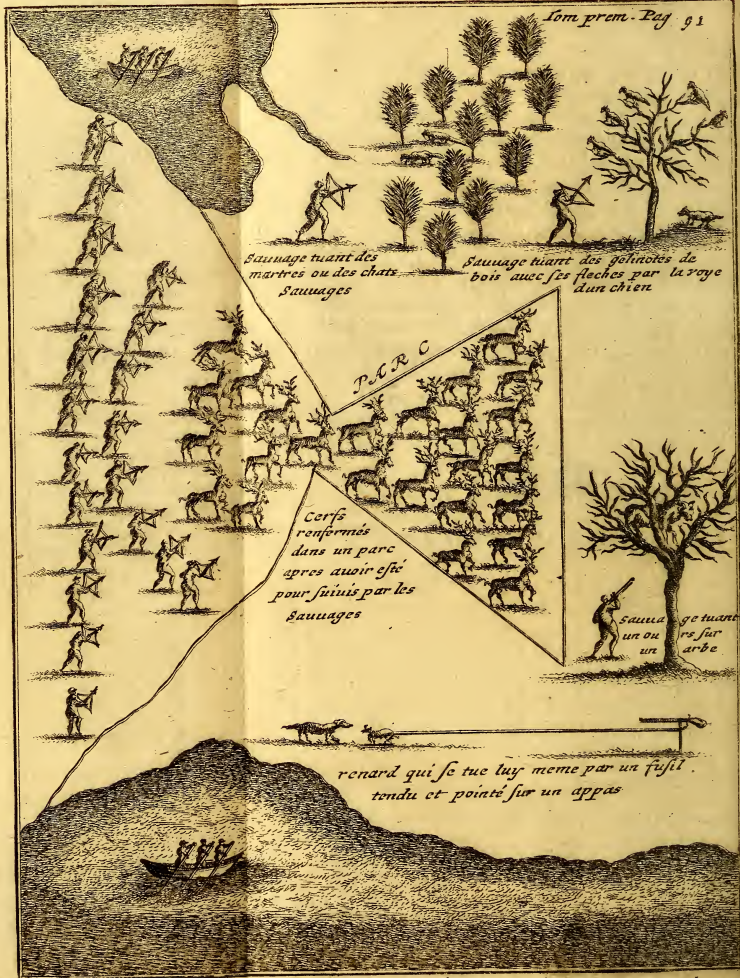 Tom prem - Pag 91
Sauuage tuant des
martres ou des chats
Sauuages
Sauuage tuant des gelinotes de
bois auec ses fleches par la voye
dun chien
PARC
Cerfs
renfermés
dans un parc
apres auoir esté
pour suiuis par les
Sauuages
Sauuage tuant
un ours sur
un arbe
renard qui se tue luy meme par un fusil
tendu et pointé sur un appas